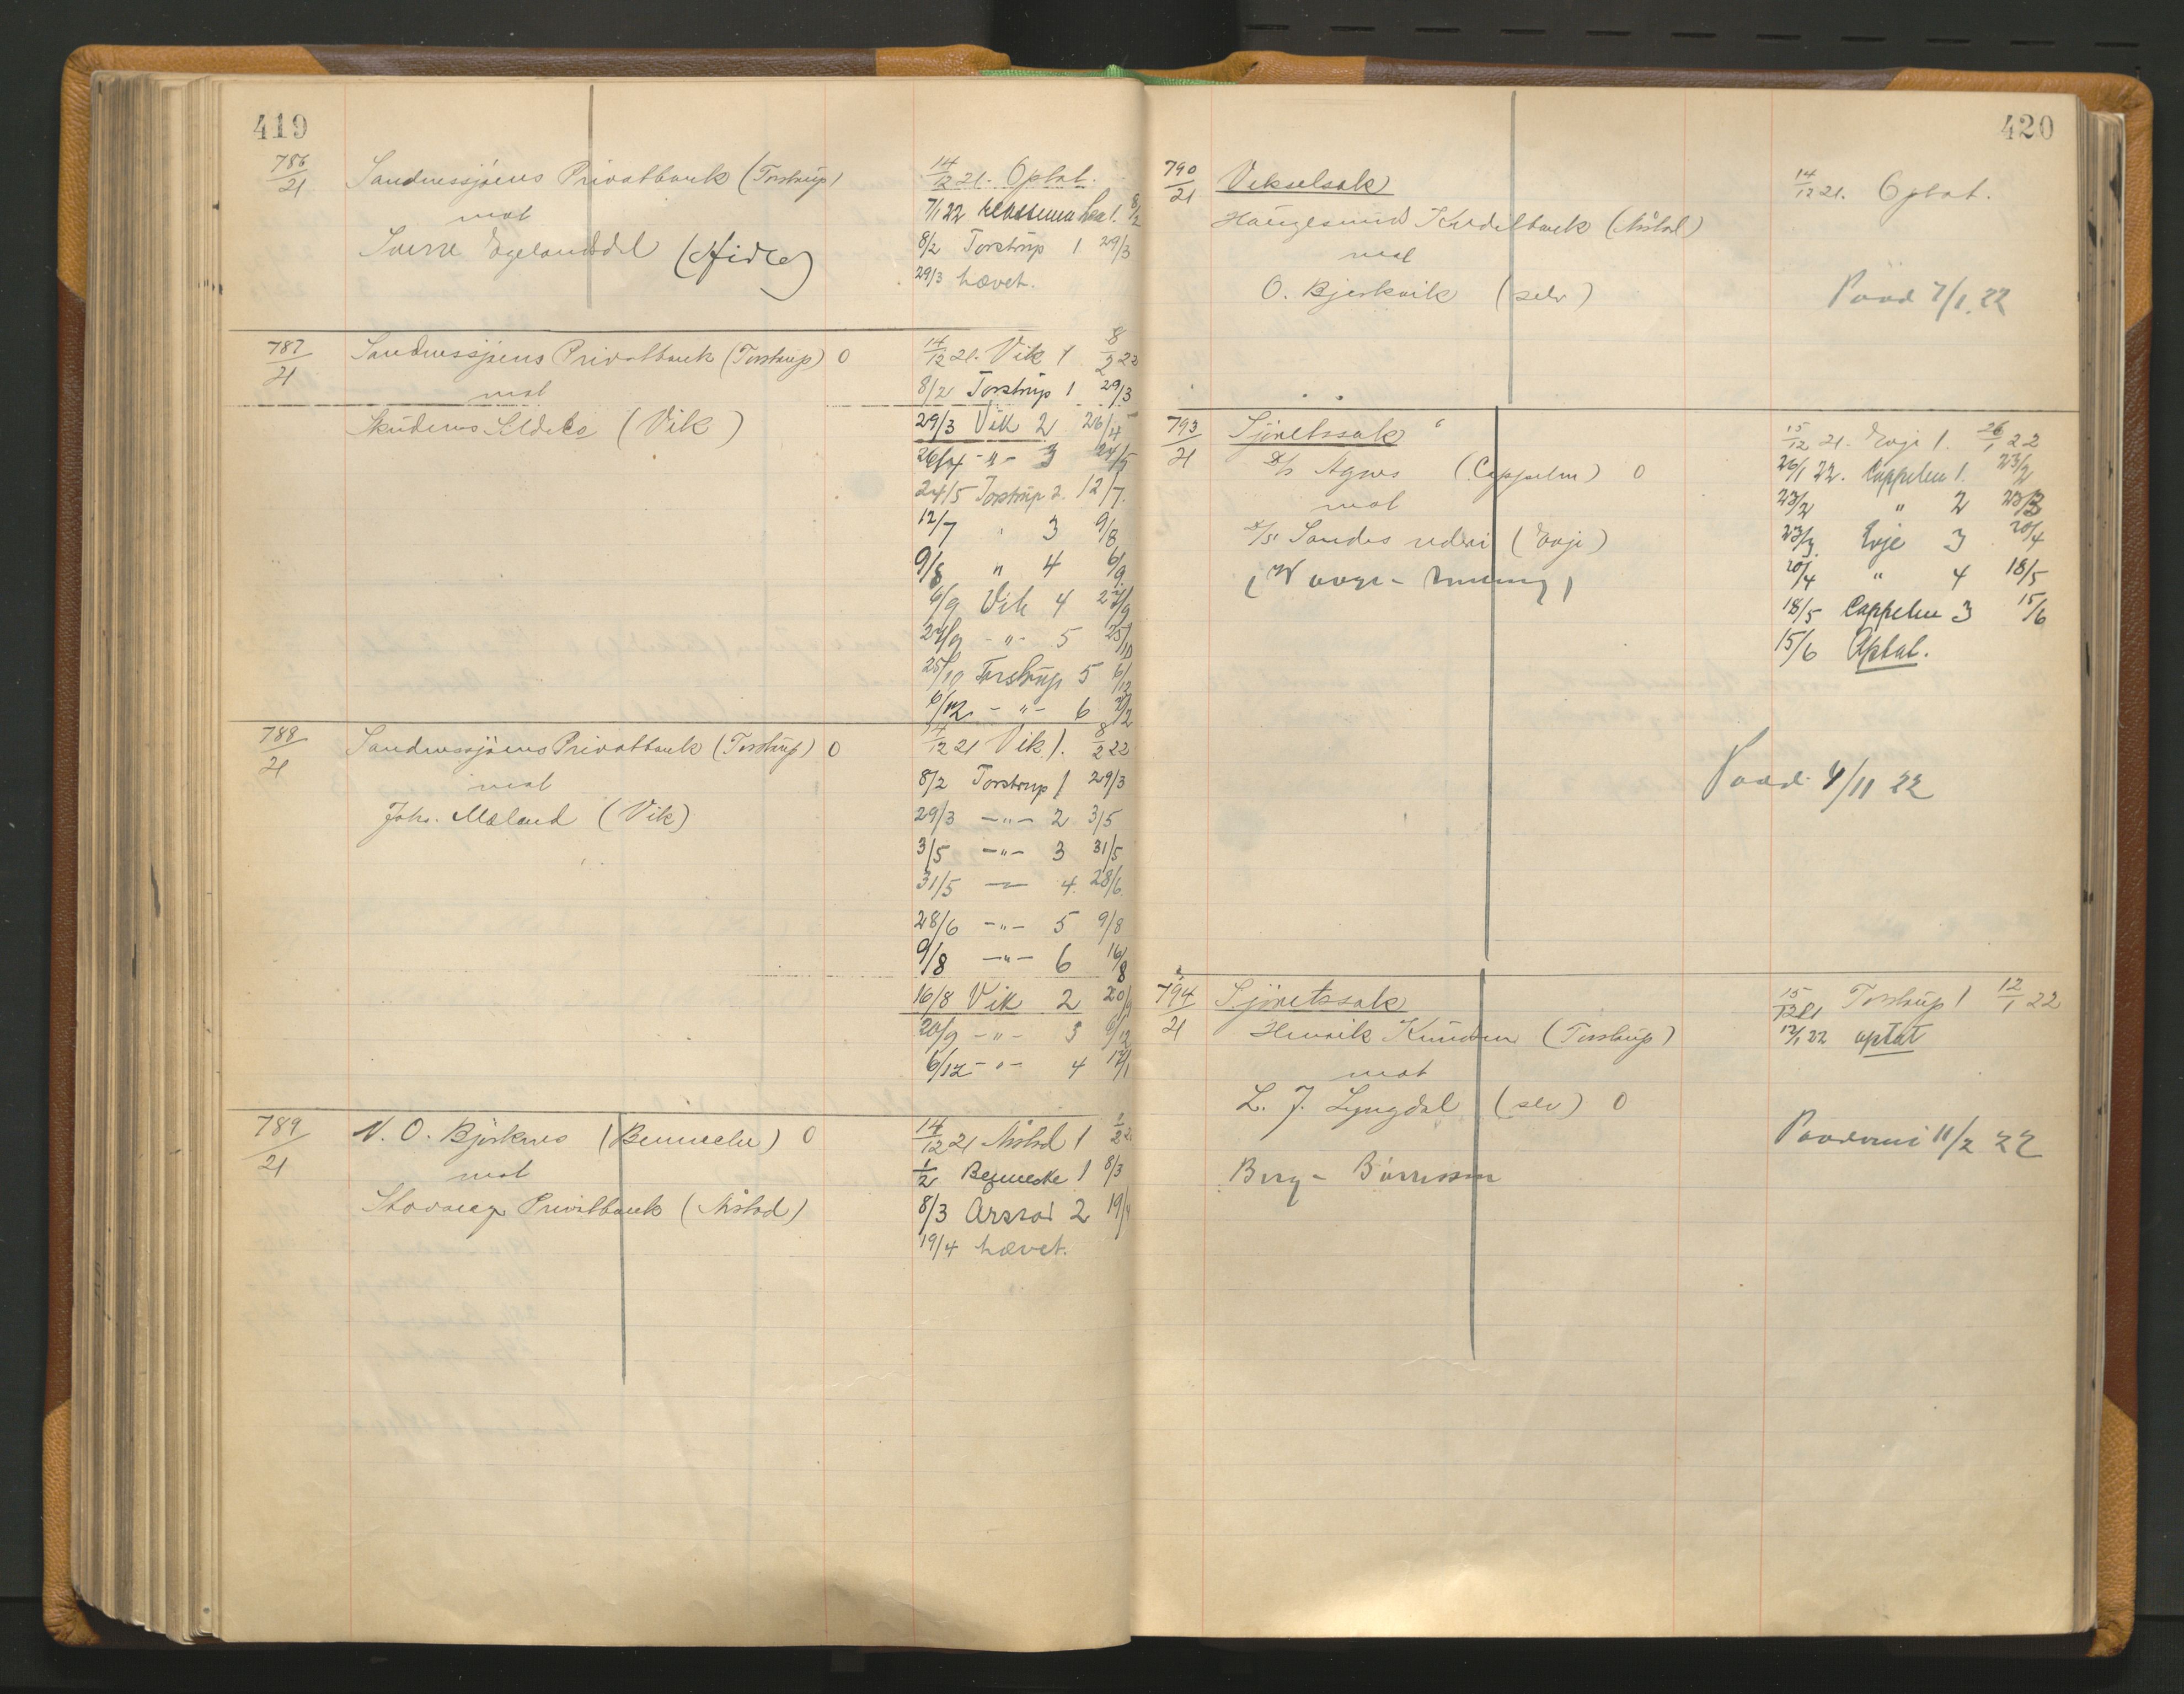 419
786/21 Sandnessjøens Privatbank (Torstrup) 14/12 21. Optat.
mot 7/1 22 1. 8/2
Sverre Egelandsdal 8/2 Torstrup 1 29/3
29/3 hævet.
787/21 Sandnessjøens Privatbank (Torstrup) 0 14/12 21. Vik 1 8/2 22
mot 8/2 Torstrup 1 29/3
Skudenes (Vik) 29/3 Vik 2 26/4
26/4 -"- 3 24/5
24/5 Torstrup 2. 12/7.
12/7 " 3 9/8
9/8 " 4 6/9.
6/9 Vik 4 27/9
27/9 -"- 5 25/10
25/10 Torstrup 5 6/12
6/12 -"- 6
788/21 Sandnessjøens Privatbank (Torstrup) 0 14/12 21 Vik 1. 8/2 22
mot 8/2 Torstrup 1 29/3
Johs. Mæland (Vik) 29/3 -"- 2 3/5
3/5 -"- 3 31/5
31/5 -"- 4. 28/6
28/6 -"- 5 9/8
9/8 -"- 6 16/8
16/8 Vik 2 20/9
20/9 -"- 3 6/12
6/12 -"- 4 17/1
789/21 N. O. Bjørknes (Bennecke) 0 14/12 21 Årstad 1 1/2 22
mot 1/2 Benneche 1 8/3
Stavanger Privatbank (Årstad) 8/3 Årstad 2 19/4
19/4 hævet.
420
790/21 Vekselsak 14/12 21. Optat.
Haugesunds Kreditbank (Årstad)
mot
O. Bjerkvik (selv) Paad 7/1 22
793/21 Sjöretssak 15/12 21. Evje 1. 26/1 22
D/S Agnes (Cappelen) 0 26/1 22. Cappelen 1. 23/2
mot 23/2 " 2 23/3
A/S Sandes rederi (Evje) 23/3 Evje 3 20/4
20/4 " 4 18/5
18/5 Cappelen 3 15/6
15/6 Optat.
Paad 4/11 22
794/21 Sjöretssak 15/12 21 Torstrup 1 12/1 22
Henrik Knudsen (Torstrup) 12/1 22 optat
mot
L. J. Lyngdal (selv) 0
Paadømt 11/2 22
Berg - Børresen